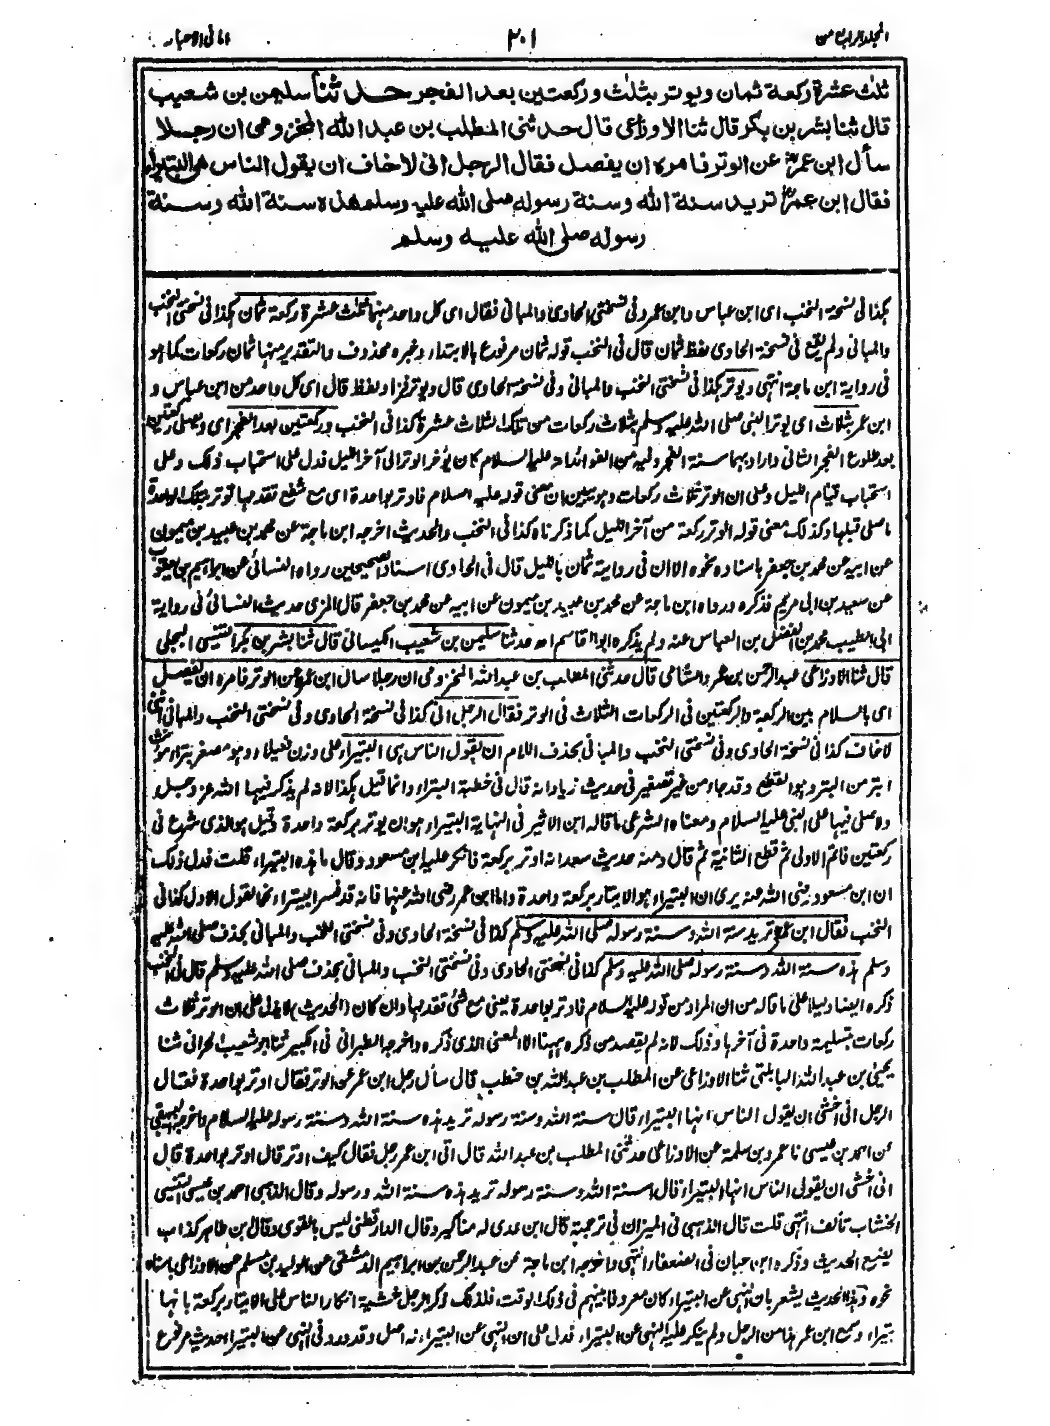 المجلد الرابع من
٢٠١
امانی الاحبار
ثلث عشرة ركعة ثمان ويوتر بثلث وركعتين بعد الفجر حدثنا سليمن بن شعيب
قال ثنا بشر بن بكر قال ثنا الاوزاعى قال حدثنى المطلب بن عبد الله المخزومى ان رجلا
سأل ابن عمر عن الوتر فامره ان يفصل فقال الرجل انى لاخاف ان يقول الناس هى البتيراء
فقال ابن عمر تريد سنة الله وسنة رسوله صلى الله عليه وسلم هذه سنة الله وسنة
رسوله صلى الله عليه وسلم
هكذا فى نسخة النخب اى ابن عباس وابن عمر وفى نسختى الحاوى والمبانى فقال اى كل واحد منهما ثلث عشرة ركعة ثمان هكذا فى نسختى النخب
والمبانى ولم يقع فى نسخة الحاوى لفظ ثمان قال فى النخب قوله ثمان مرفوع بالابتداء وخبره محذوف والتقدير منها ثمان ركعات كما هو
فى رواية ابن ماجة انتهى ويوتر هكذا فى نسختى النخب والمبانى وفى نسخة الحاوى قال ويوتر فزاد لفظ قال اى كل واحد من ابن عباس و
ابن عمر بثلاث اى يوتر النبى صلى الله عليه وسلم بثلاث ركعات من تلك الثلاث عشرة كذا فى النخب وركعتين بعد الفجر اى ويصلى ركعتين
بعد طلوع الفجر الثانى واراد بهما سنة الفجر وفيه من الفوائد انه عليه السلام كان يؤخر الوتر الى آخر الليل فدل على استحباب ذلك وعلى
استحباب قيام الليل وعلى ان الوتر ثلاث ركعات وهو يبين ان معنى قوله عليه السلام فاوتر بواحدة اى مع شفع تقدمها توتر بتلك الواحدة
ما صلى قبلها وكذلك معنى قوله الوتر ركعة من آخر الليل كما ذكرناه كذا فى النخب والحديث اخرجه ابن ماجة عن محمد بن عبيد بن ميمون
عن ابيه عن محمد بن جعفر باسناده نحوه الا ان فى روايته ثمان بالليل قال فى الحاوى اسناد الصحيحين رواه النسائى عن ابراهيم بن يعقوب
عن سعيد بن ابى مريم فذكره ورواه ابن ماجة عن محمد بن عبيد بن ميمون عن ابيه عن محمد بن جعفر قال المزى حديث النسائى فى رواية
ابى الطيب محمد بن الفضل بن العباس عنه ولم يذكره ابو القاسم اه حدثنا سليمن بن شعيب الكيسانى قال ثنا بشر بن بكر التنيسى البجلى
قال ثنا الاوزاعى عبد الرحمن بن عمر والشامى قال حدثنى المطلب بن عبد الله المخزومى ان رجلا سال ابن عمر عن الوتر فامره ان يفصل
اى بالسلام بين الركعة والركعتين فى الركعات الثلاث فى الوتر فقال الرجل انى كذا فى نسخة الحاوى وفى نسختى النخب والمبانى اننى
لاخاف كذا فى نسخة الحاوى وفى نسختى النخب والمبانى بحذف اللام ان يقول الناس هى البتيراء على وزن فعيلاء وهو مصغر بتراء مؤنث
ابتر من البتر وهو القطع وقد جاء من غير تصغير فى حديث زياد انه قال فى خطبة البتراء وانما قيل هكذا لانه لم يذكر فيها الله عز وجل
ولا صلى فيها على النبى عليه السلام ومعناه الشرعى ما قاله ابن الاثير فى النهاية البتيراء هو ان يوتر بركعة واحدة وقيل هو الذى شرع فى
ركعتين فاتم الاولى ثم قطع الثانية ثم قال ومنه حديث سعد انه اوتر بركعة فانكر عليه ابن مسعود وقال ما هذه البتيراء قلت فدل ذلك
ان ابن مسعود رضى الله عنه يرى ان البتيراء هو الايتار بركعة واحدة واما ابن عمر رضى الله عنهما فانه قد فسر البتيراء نحو القول الاول كذا فى
النخب فقال ابن عمر تريد سنة الله وسنة رسوله صلى الله عليه وسلم كذا فى نسخة الحاوى وفى نسختى النخب والمبانى بحذف صلى الله عليه
وسلم هذه سنة الله وسنة رسوله صلى الله عليه وسلم كذا فى نسختى الحاوى وفى نسختى النخب والمبانى بحذف صلى الله عليه وسلم قال فى النخب
ذكره ايضا دليلا على ما قاله من ان المراد من قوله عليه السلام فاوتر بواحدة يعنى مع شئ تقدمها وان كان (الحديث) لا يدل على ان الوتر ثلاث
ركعات بتسليمة واحدة فى آخرها وذلك لانه لم يقصد من ذكره ههنا الا المعنى الذى ذكره واخرجه الطبرانى فى الكبير ثنا ابو شعيب الحرانى ثنا
يحيى بن عبد الله البابلتى ثنا الاوزاعى عن المطلب بن عبد الله بن حنطب قال سأل رجل ابن عمر عن الوتر فقال اوتر بواحدة فقال
الرجل انى اخشى ان يقول الناس انها البتيراء قال سنة الله وسنة رسوله تريد هذه سنة الله وسنة رسوله عليه السلام واخرجه البيهقى
عن احمد بن عيسى نا عمرو بن سلمة عن الاوزاعى حدثنى المطلب بن عبد الله قال اتى ابن عمر رجل فقال كيف اوتر قال اوتر بواحدة قال
انى اخشى ان يقولى الناس انها البتيراء قال اسنة الله وسنة رسوله تريد هذه سنة الله ورسوله وقال الذهبى احمد بن عيسى التنيسى
الخشاب تالف انتهى قلت قال الذهبى فى الميزان فى ترجمته قال ابن عدى له مناكير وقال الدارقطنى ليس بالقوى وقال ابن طاهر كذاب
يضع الحديث وذكره ابن حبان فى الضعفاء انتهى واخرجه ابن ماجة عن عبد الرحمن بن ابراهيم الدمشقى عن الوليد بن مسلم عن الاوزاعى باسناده
نحوه وهذا الحديث يشعر بان النهى عن البتيراء كان معروفا بينهم فى ذلك الوقت فلذلك ذكر الرجل خشية انكار الناس على الايتار بركعة بانها
بتيراء وسمع ابن عمر هذا من الرجل ولم ينكر عليه النهى عن البتيراء فدل على ان النهى عن البتيراء له اصل وقد ورد فى النهى عن البتيراء حديث مرفوع